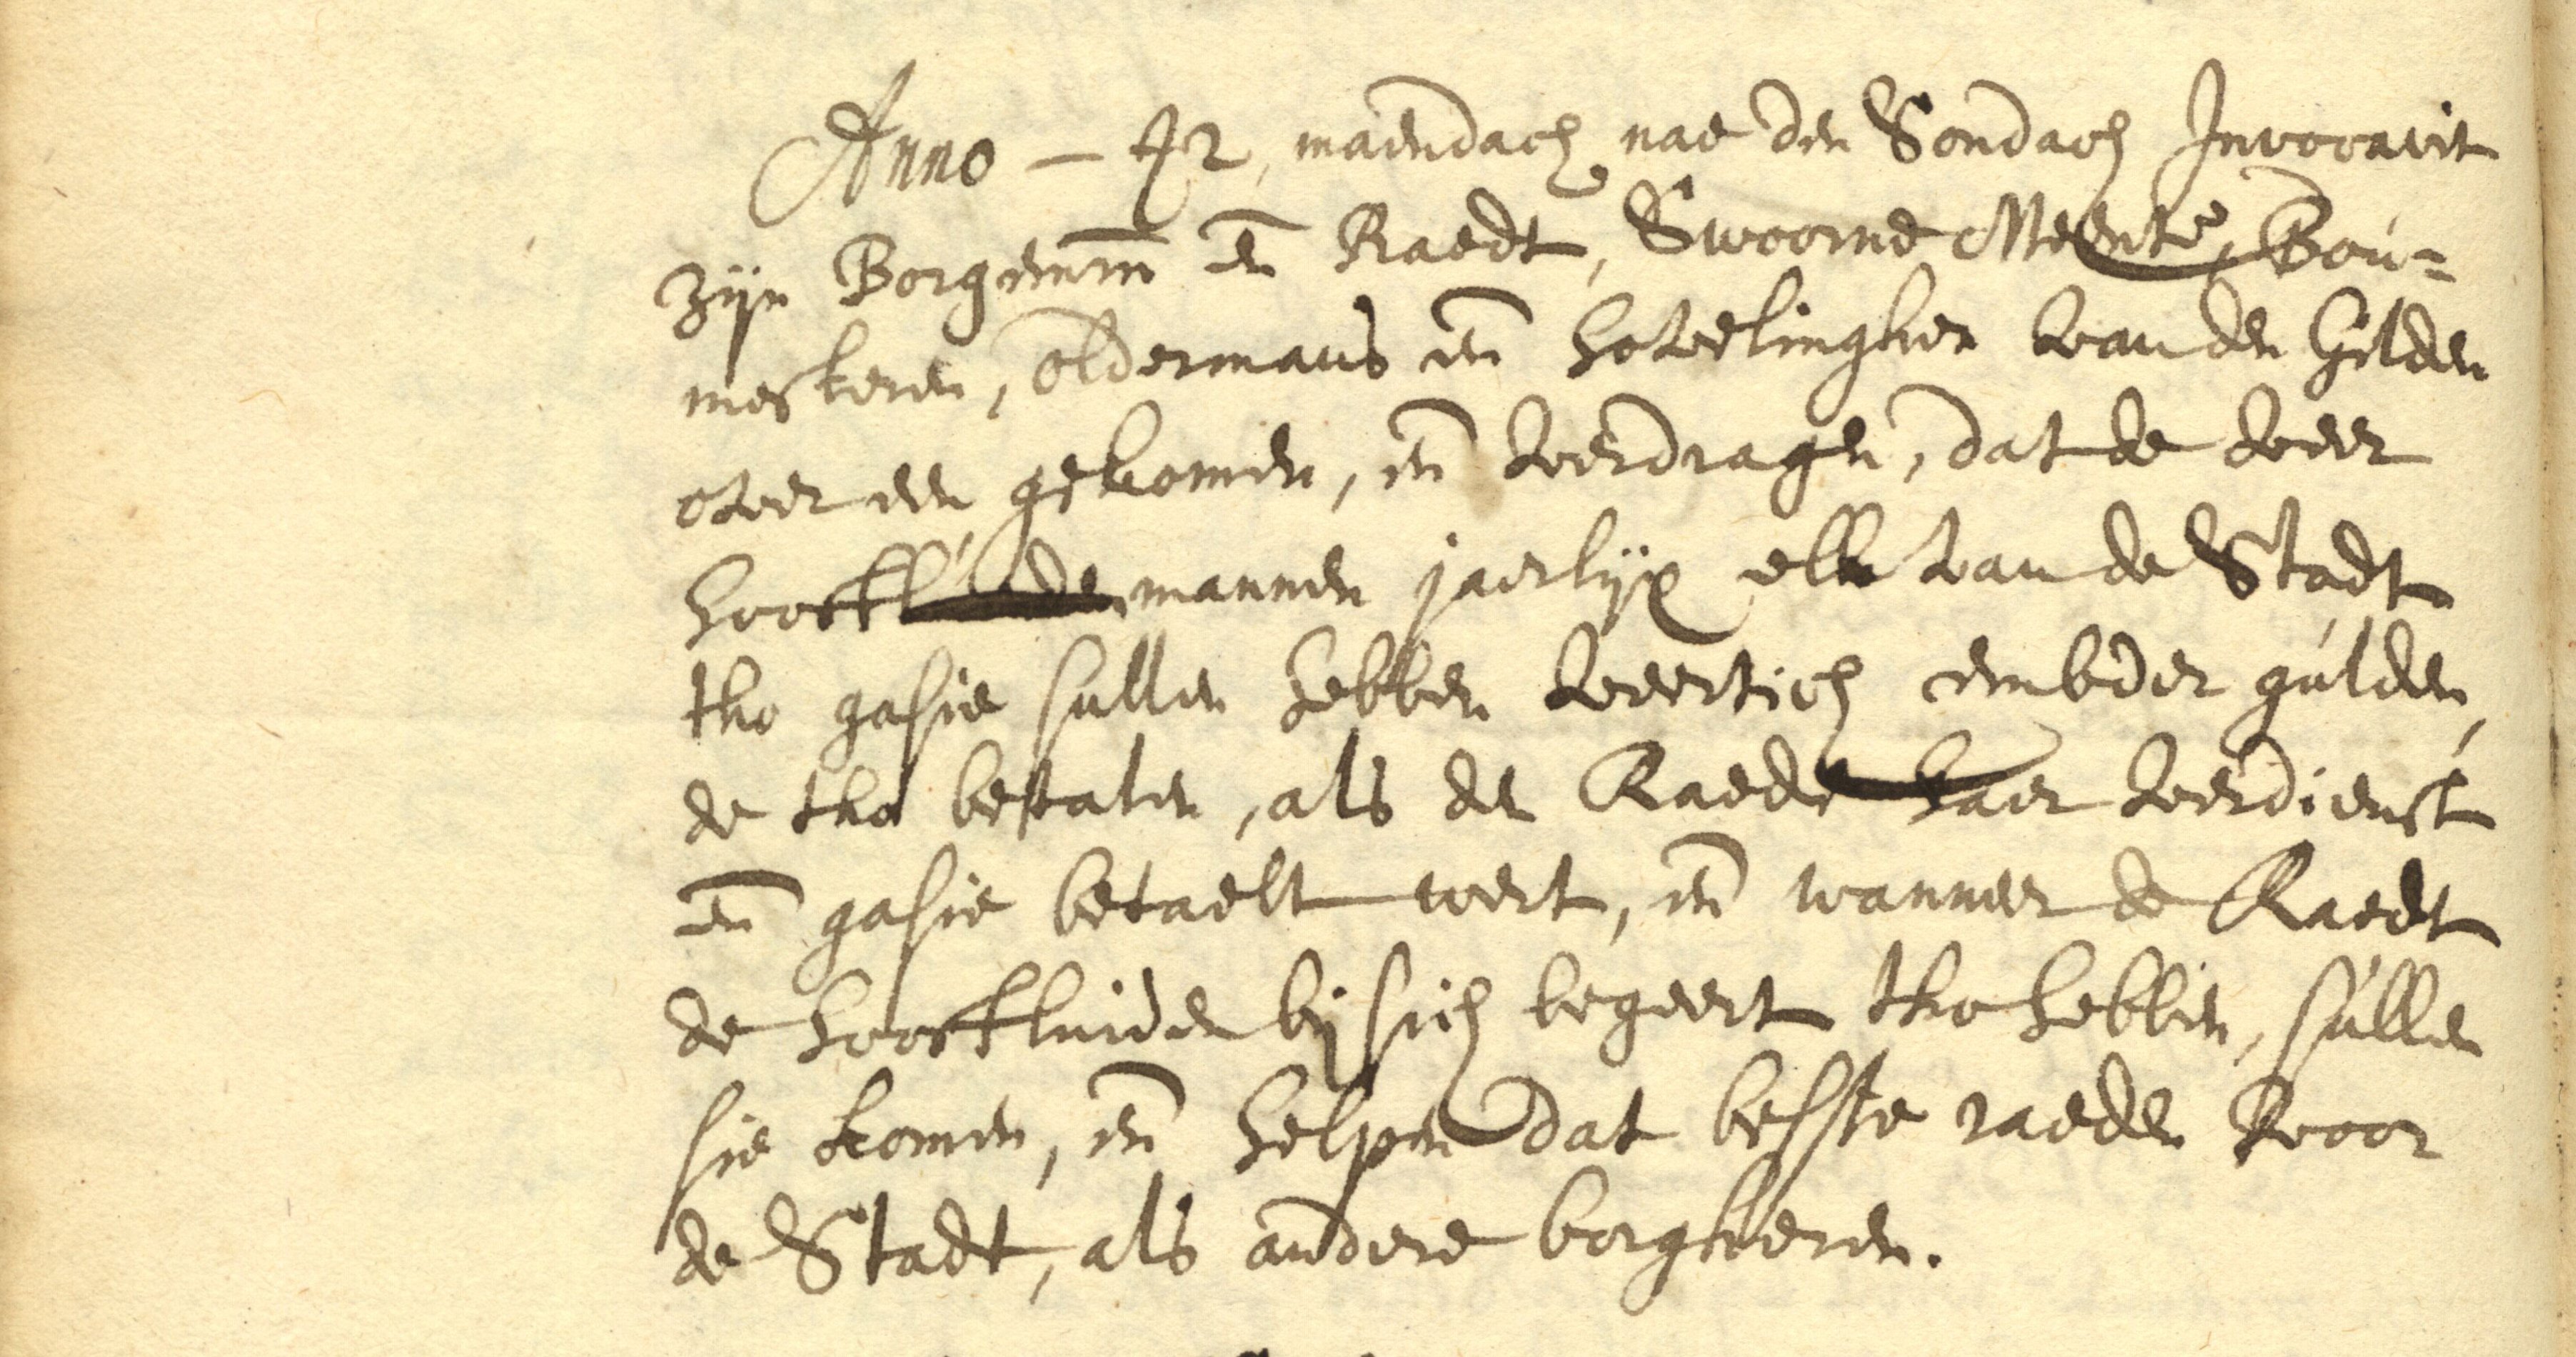 Anno - 42, maendach nae den Sondach Invocavit
zijn Borgemrn en Raedt, Swoorne Meente, Bou=
mesteren, Oldermans en hovelinghen van den Gilden
over een gekomen, en verdragen, dat de veer
hooftl mannen jaerlijx elk van de Stadt
tho gasie sullen hebben veertich embder gulden,
de tho betalen, als den Raede haer verdienst
en gasie betaelt wert, en wanneer de Raedt
de hooftluiden bij sich begeert tho hebben, sullen
sie komen, en helpen dat beste raeden voor
de Stadt, als andere borgheren.